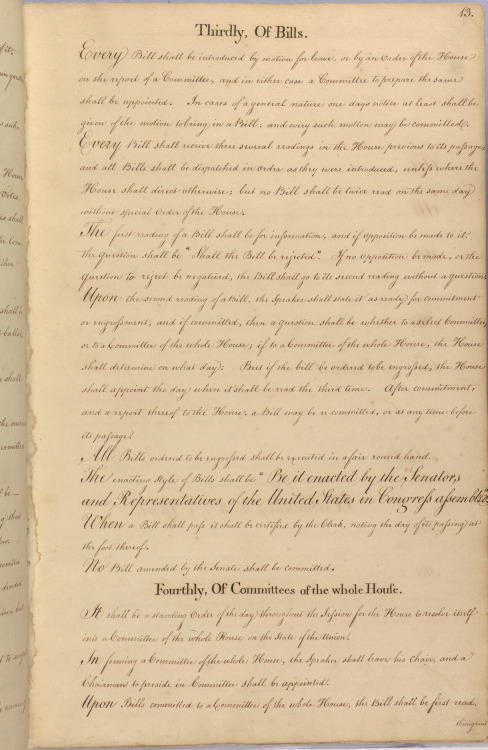 13.
Thirdly, Of Bills.
Every Bill shall be introduced by motion for leave, or by an order of the House
on the report of a Committee, and in either case a Committee to prepare the same
shall be appointed. In cases of a general nature one days notice at least shall be
given of the motion to bring in a Bill; and every such motion may be committed.
Every Bill shall receive three several readings in the House previous to its passage,
and all Bills shall be dispatched in order as they were introduced, unless where the
House shall direct otherwise; but no Bill shall be twice read on the same day
without special Order of the House.
The first reading of a Bill shall be for information, and if opposition be made to it,
the question shall be "Shall the Bill be rejected". If no opposition be made, or the
question to reject be negatived, the Bill shall go to its second reading without a question.
Upon the second reading of a Bill, the Speaker shall state it as ready for commitment
or engrossment, and if committed, then a question shall be whether to a select Committee,
or to a Committee of the whole House; if to a Committee of the whole House, the House
shall determine on what day; But if the bill be ordered to be engrossed, the House
shall appoint the day when it shall be read the third time. After commitment,
and a report thereof to the House, a Bill may be re-committed, or at any time before
its passage.
All Bills ordered to be engrossed shall be executed in a fair round hand.
The enacting Style of Bills shall be "Be it enacted by the Senators
and Representatives of the United States in Congress assembled."
When a Bill shall pass it shall be certified by the Clerk, noting the day of its passing at
the foot thereof.
No Bill amended by the Senate shall be committed.
Fourthly, Of Committees of the whole House.
It shall be a standing Order of the day throughout the Session for the House to resolve itself
into a Committee of the whole House on the State of the Union.
In forming a Committee of the whole House, the Speaker shall leave his Chair, and a
Chairman to preside in Committee shall be appointed.
Upon Bills committed to a Committee of the whole House, the Bill shall be first read,
throughout